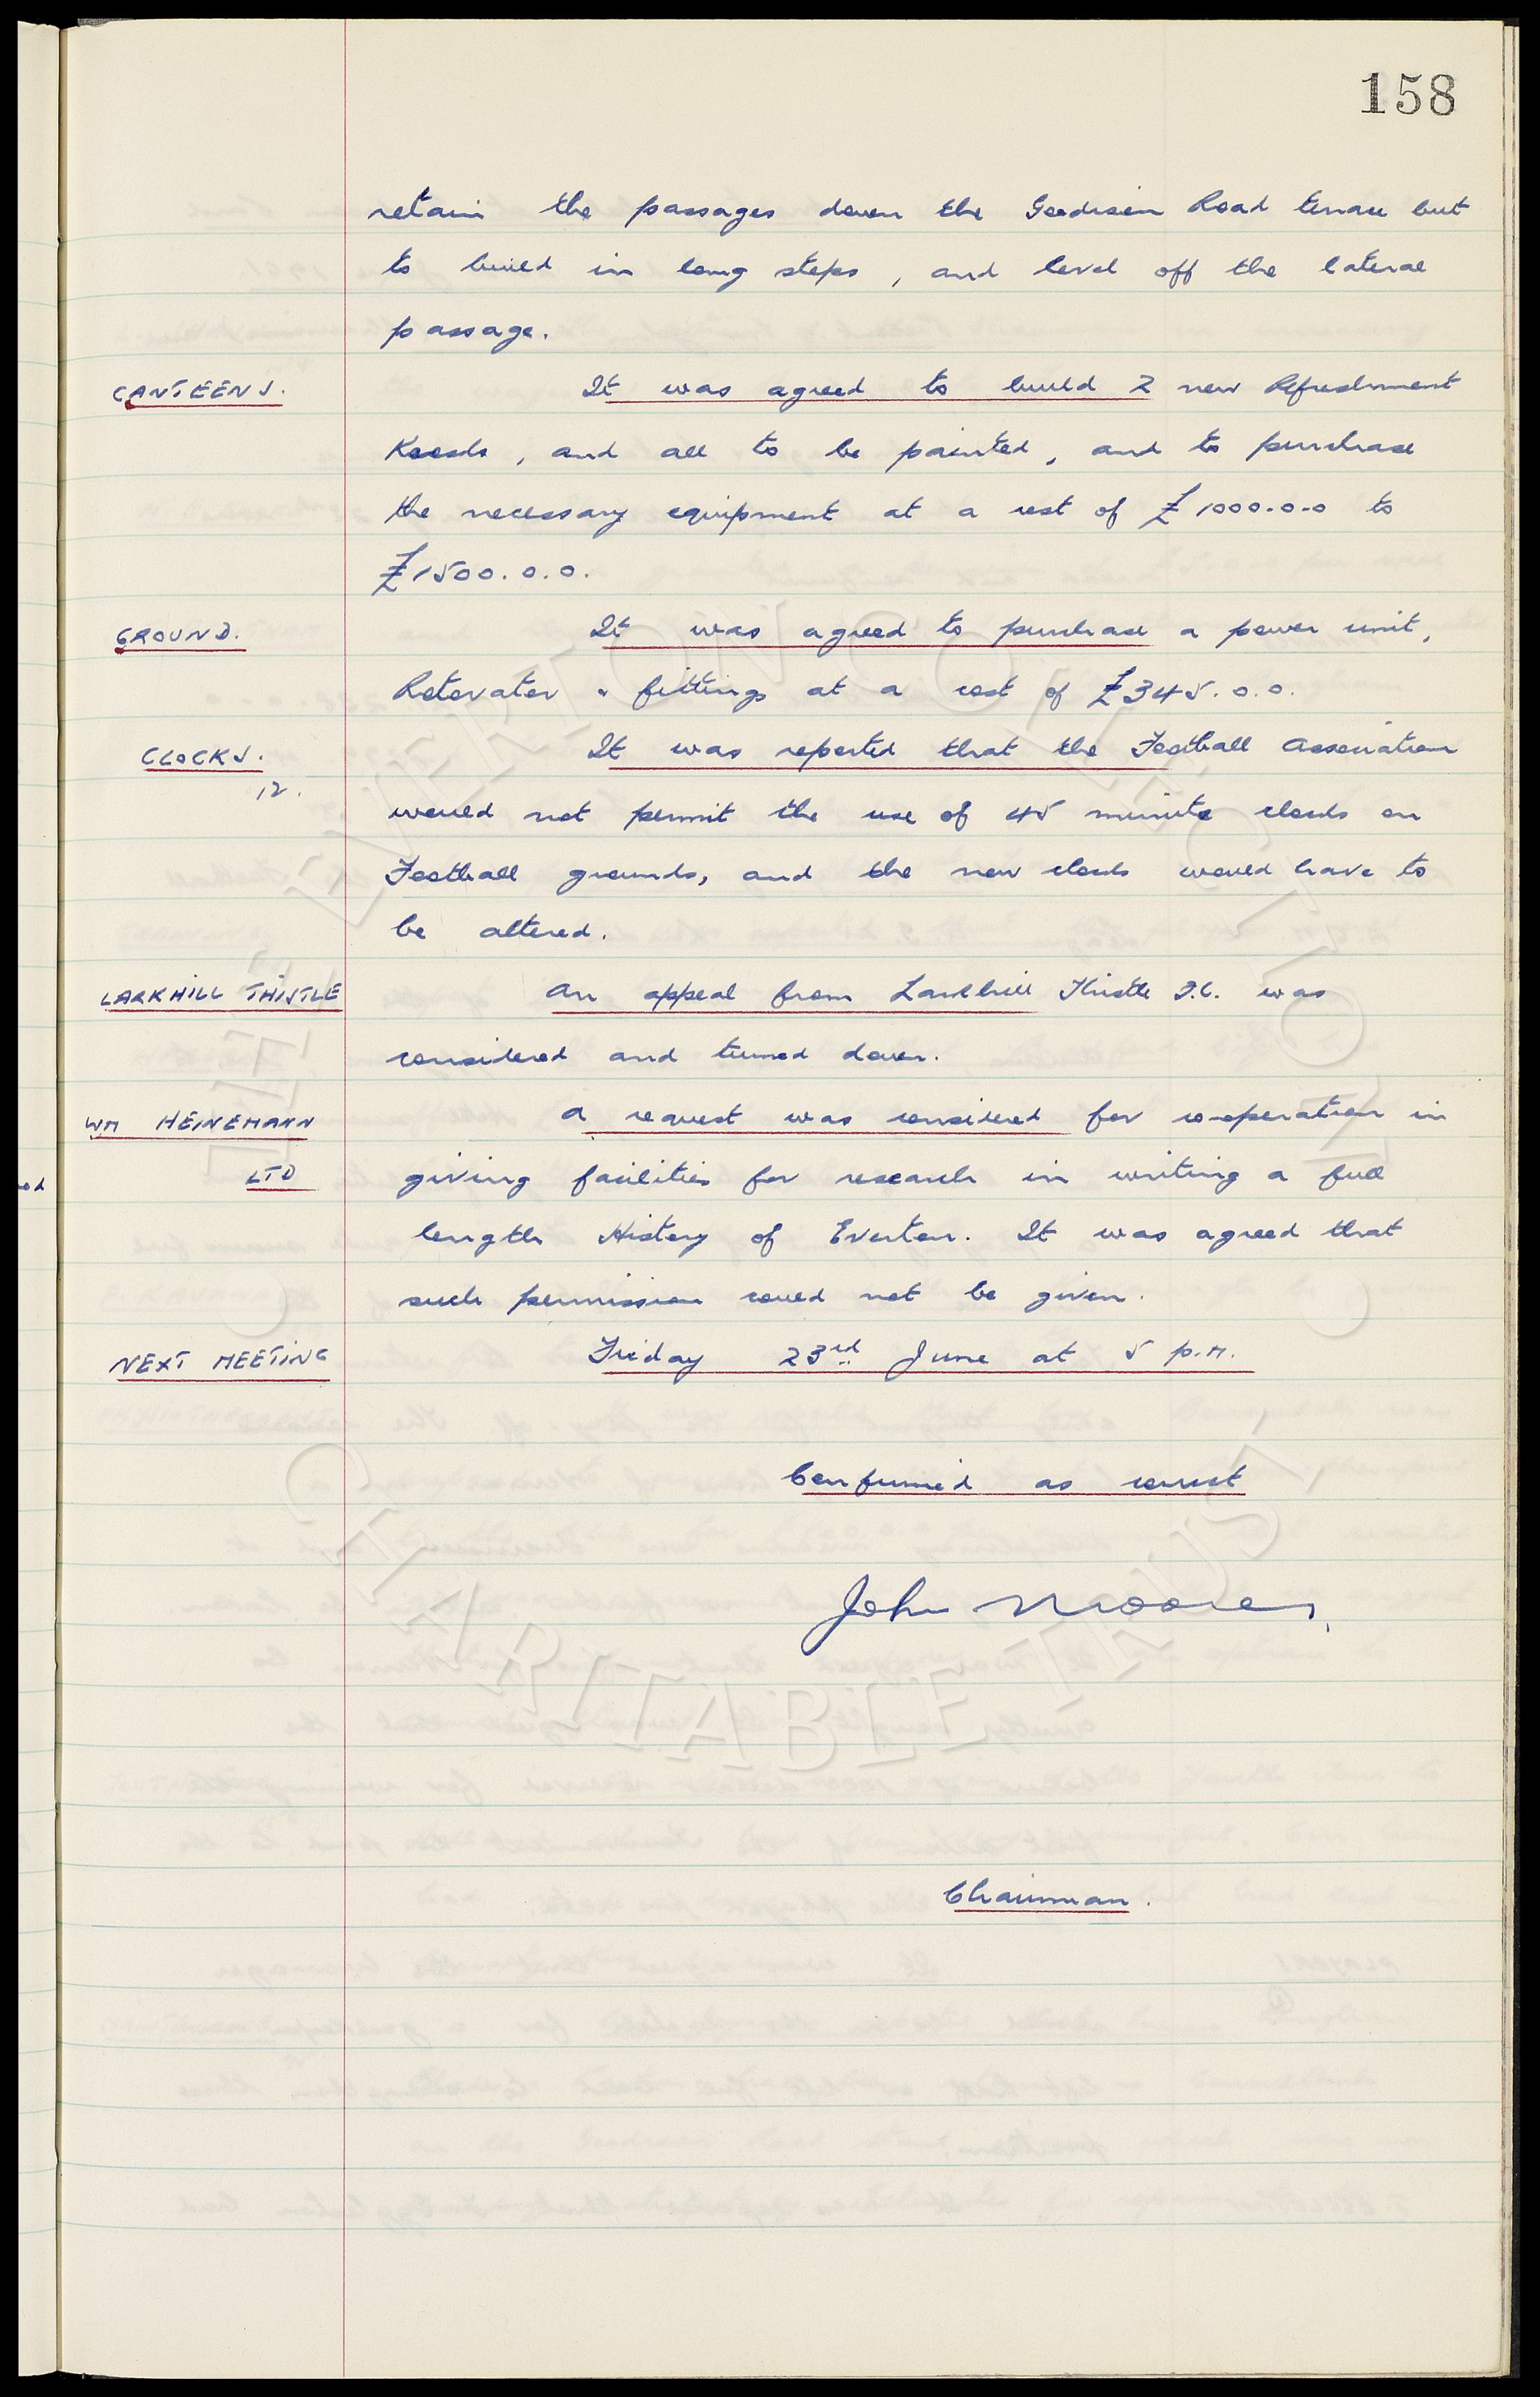 158
retain the passages down the Goodison Road terrace but
to build in long steps, and level off the lateral
passage.
CANTEENS. It was agreed to build 2 new Refreshment
Kiosks, and all to be painted, and to purchase
the necessary equipment at a cost of £1000.0.0 to
£1500.0.0.
GROUND. It was agreed to purchase a power unit,
Rotovator & fittings at a cost of £345.0.0.
CLOCKS. It was reported that the Football Association
12.
would not permit the use of 45 minute clocks on
Football grounds, and the new clocks would have to
be altered.
LARKHILL THISTLE An appeal from Larkhill Thistle F.C. was
considered and turned down.
WM HEINEMANN A request was considered for co-operation in
LTD giving facilities for research in writing a full
length History of Everton. It was agreed that
such permission could not be given.
NEXT MEETING Friday 23rd June at 5 p.m.
Confirmed as correct
John Moores,
Chairman.
EVERTON COLLECTION
THE
CHARITABLE TRUST